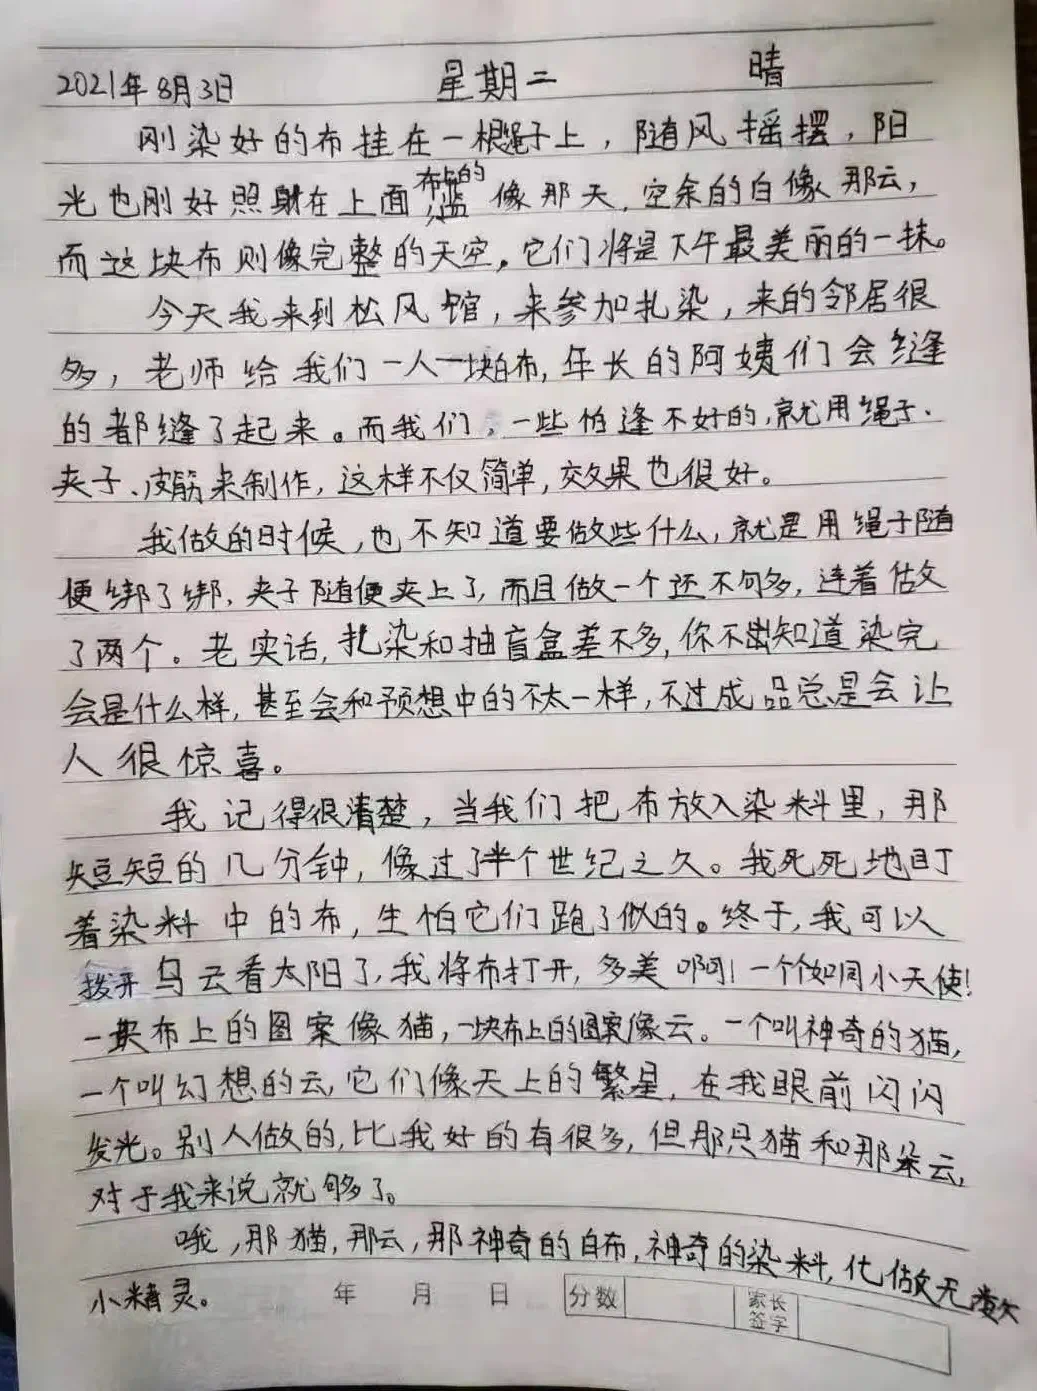 2021年8月3日 星期二 晴
刚染好的布挂在一根绳子上，随风摇摆，阳
光也刚好照射在上面，布上的蓝像那天，空余的白像那云，
而这块布则像完整的天空。它们将是下午最美丽的一抹。
今天我来到松风馆，来参加扎染，来的邻居很
多，老师给我们一人一块白布，年长的阿姨们会缝
的都缝了起来。而我们，一些怕逢不好的，就用绳子、
夹子、皮筋来制作，这样不仅简单，效果也很好。
我做的时候，也不知道要做些什么，就是用绳子随
便绑了绑，夹子随便夹上了，而且做一个还不够多，连着做
了两个。老实话，扎染和抽盲盒差不多，你不知道染完
会是什么样，甚至会和预想中的不太一样，不过成品总是会让
人很惊喜。
我记得很清楚，当我们把布放入染料里，那
短短的几分钟，像过了半个世纪之久。我死死地盯
着染料中的布，生怕它们跑了似的。终于，我可以
拨开乌云看太阳了，我将布打开，多美啊！一个个如同小天使！
一块布上的图案像猫，一块布上的图案像云。一个叫神奇的猫，
一个叫幻想的云，它们像天上的繁星，在我眼前闪闪
发光。别人做的，比我好的有很多，但那只猫和那朵云，
对于我来说就够了。
哦，那猫，那云，那神奇的白布，神奇的染料，化做无数
小精灵。
年 月 日 分数 家长签字